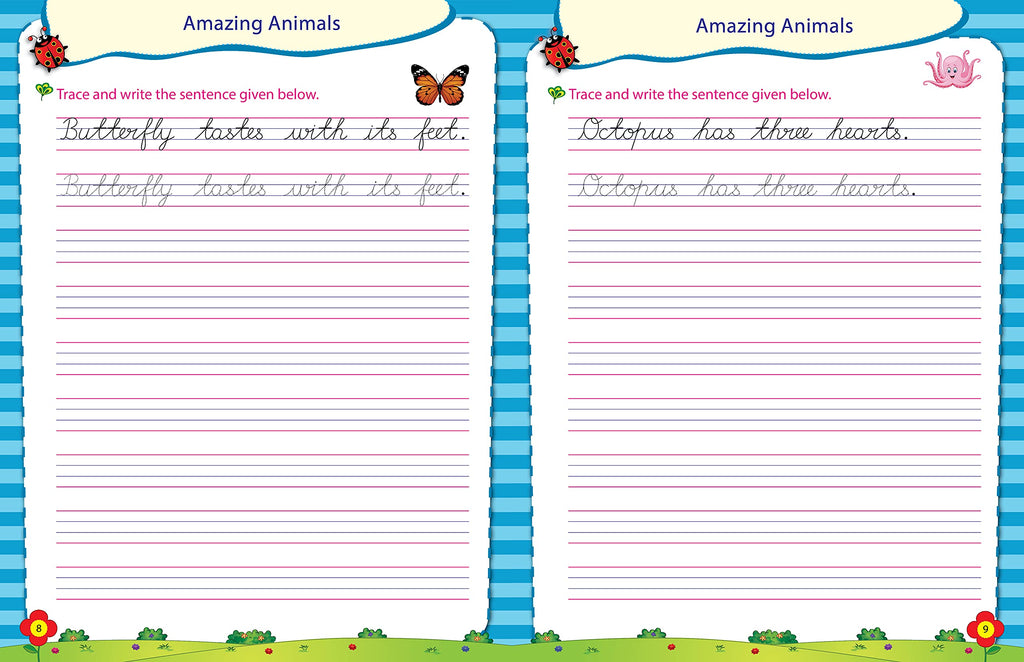 Amazing Animals
Trace and write the sentence given below.
Butterfly tastes with its feet.
Butterfly tastes with its feet.
8
Amazing Animals
Trace and write the sentence given below.
Octopus has three hearts.
Octopus has three hearts.
9